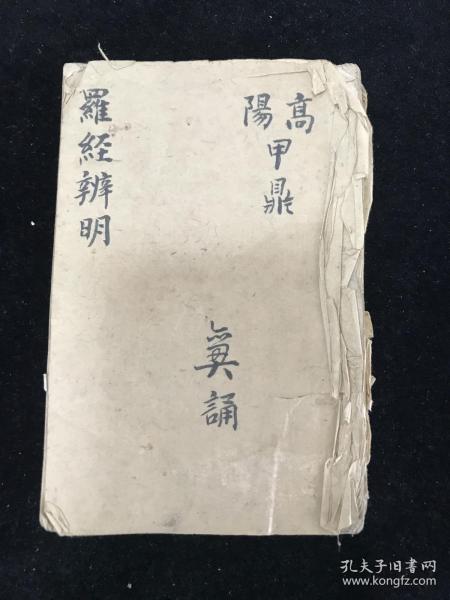 高陽
甲鼎
誦
羅経辨明
孔夫子旧书网
www.kongfz.com